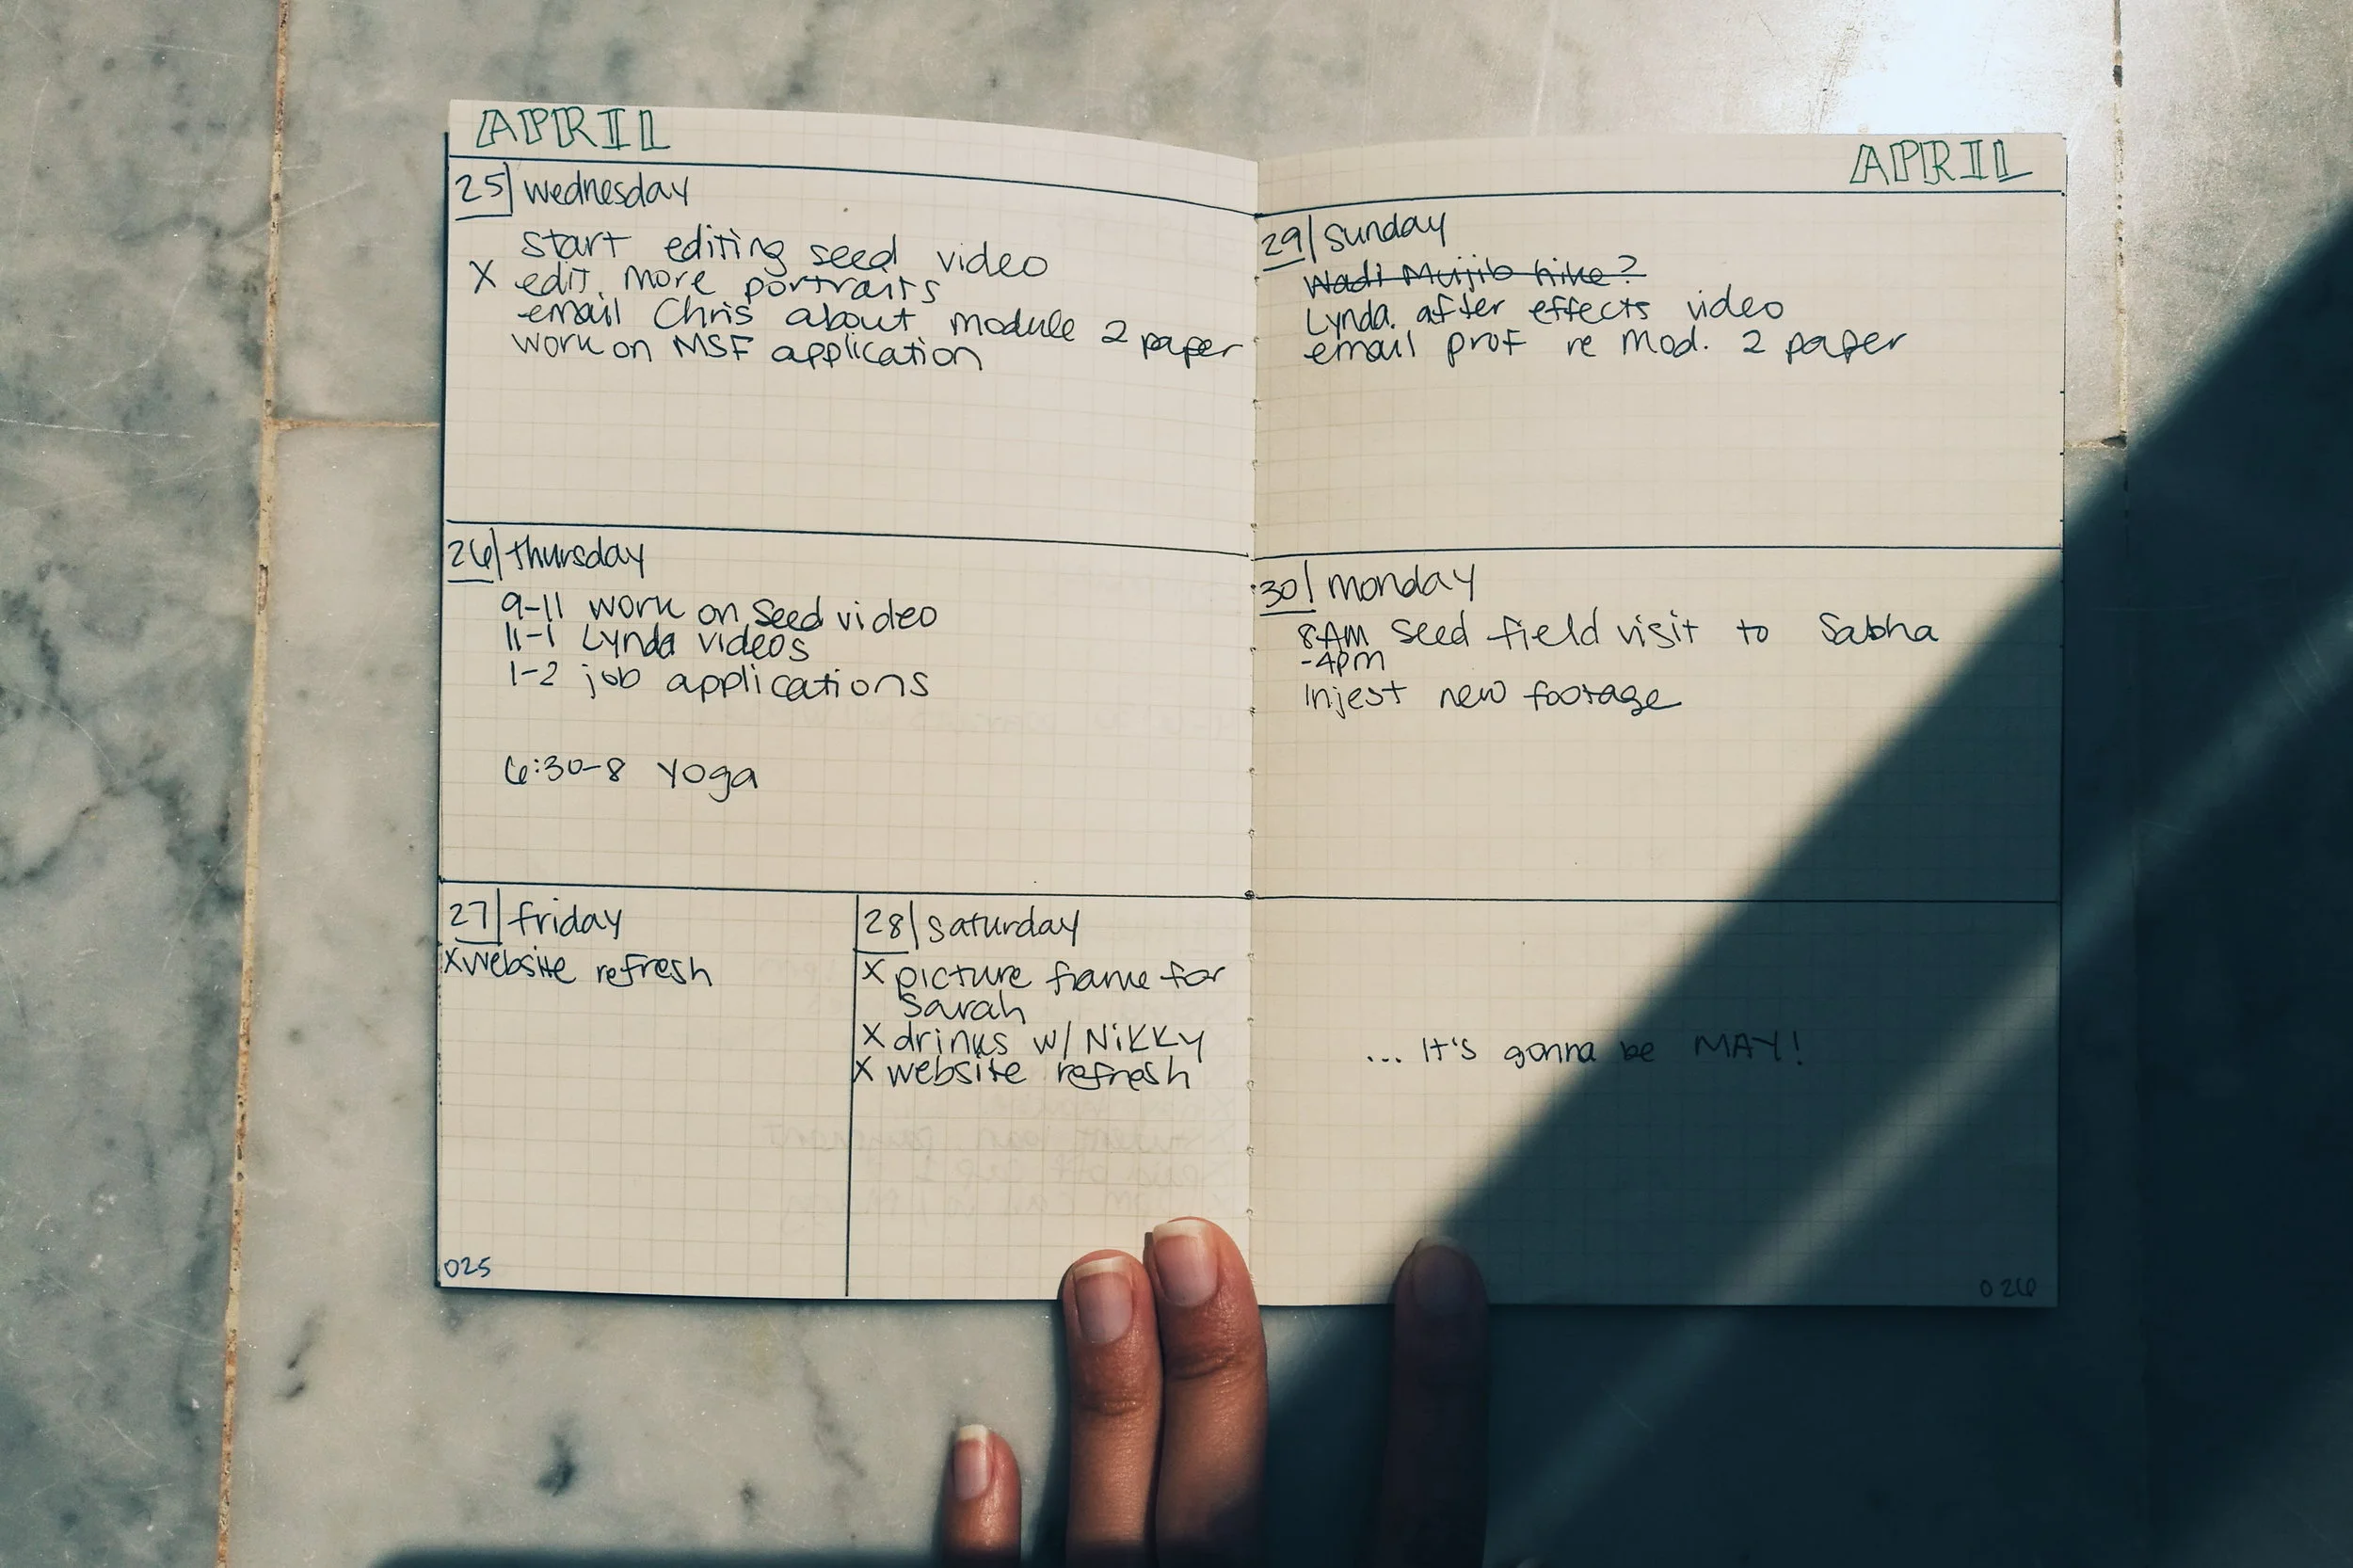 APRIL
25 wednesday
start editing seed video
X edit more portraits
email Chris about module 2 paper
work on MSF application
26 thursday
9-11 work on seed video
11-1 Lynda videos
1-2 job applications
6:30-8 yoga
27 friday
X website refresh
28 saturday
X picture frame for
Sarah
X drinks w/ Nikky
X website refresh
025
APRIL
29 sunday
Wadi Mujib hike?
Lynda after effects video
email prof re Mod. 2 paper
30 monday
8AM seed field visit to Sabha
-4pm
Injest new footage
... It's gonna be MAY!
026